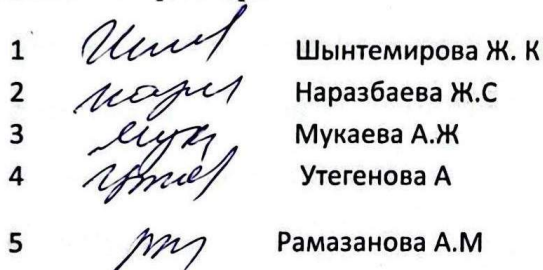 1 Шынтемирова Ж. К
2 Наразбаева Ж.С
3 Мукаева А.Ж
4 Утегенова А
5 Рамазанова А.М